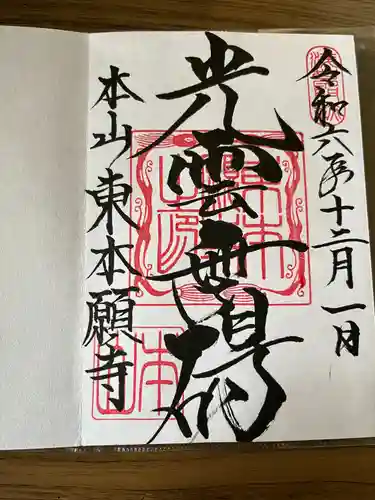 令和六年十二月一日
光雲無碍
本山東本願寺